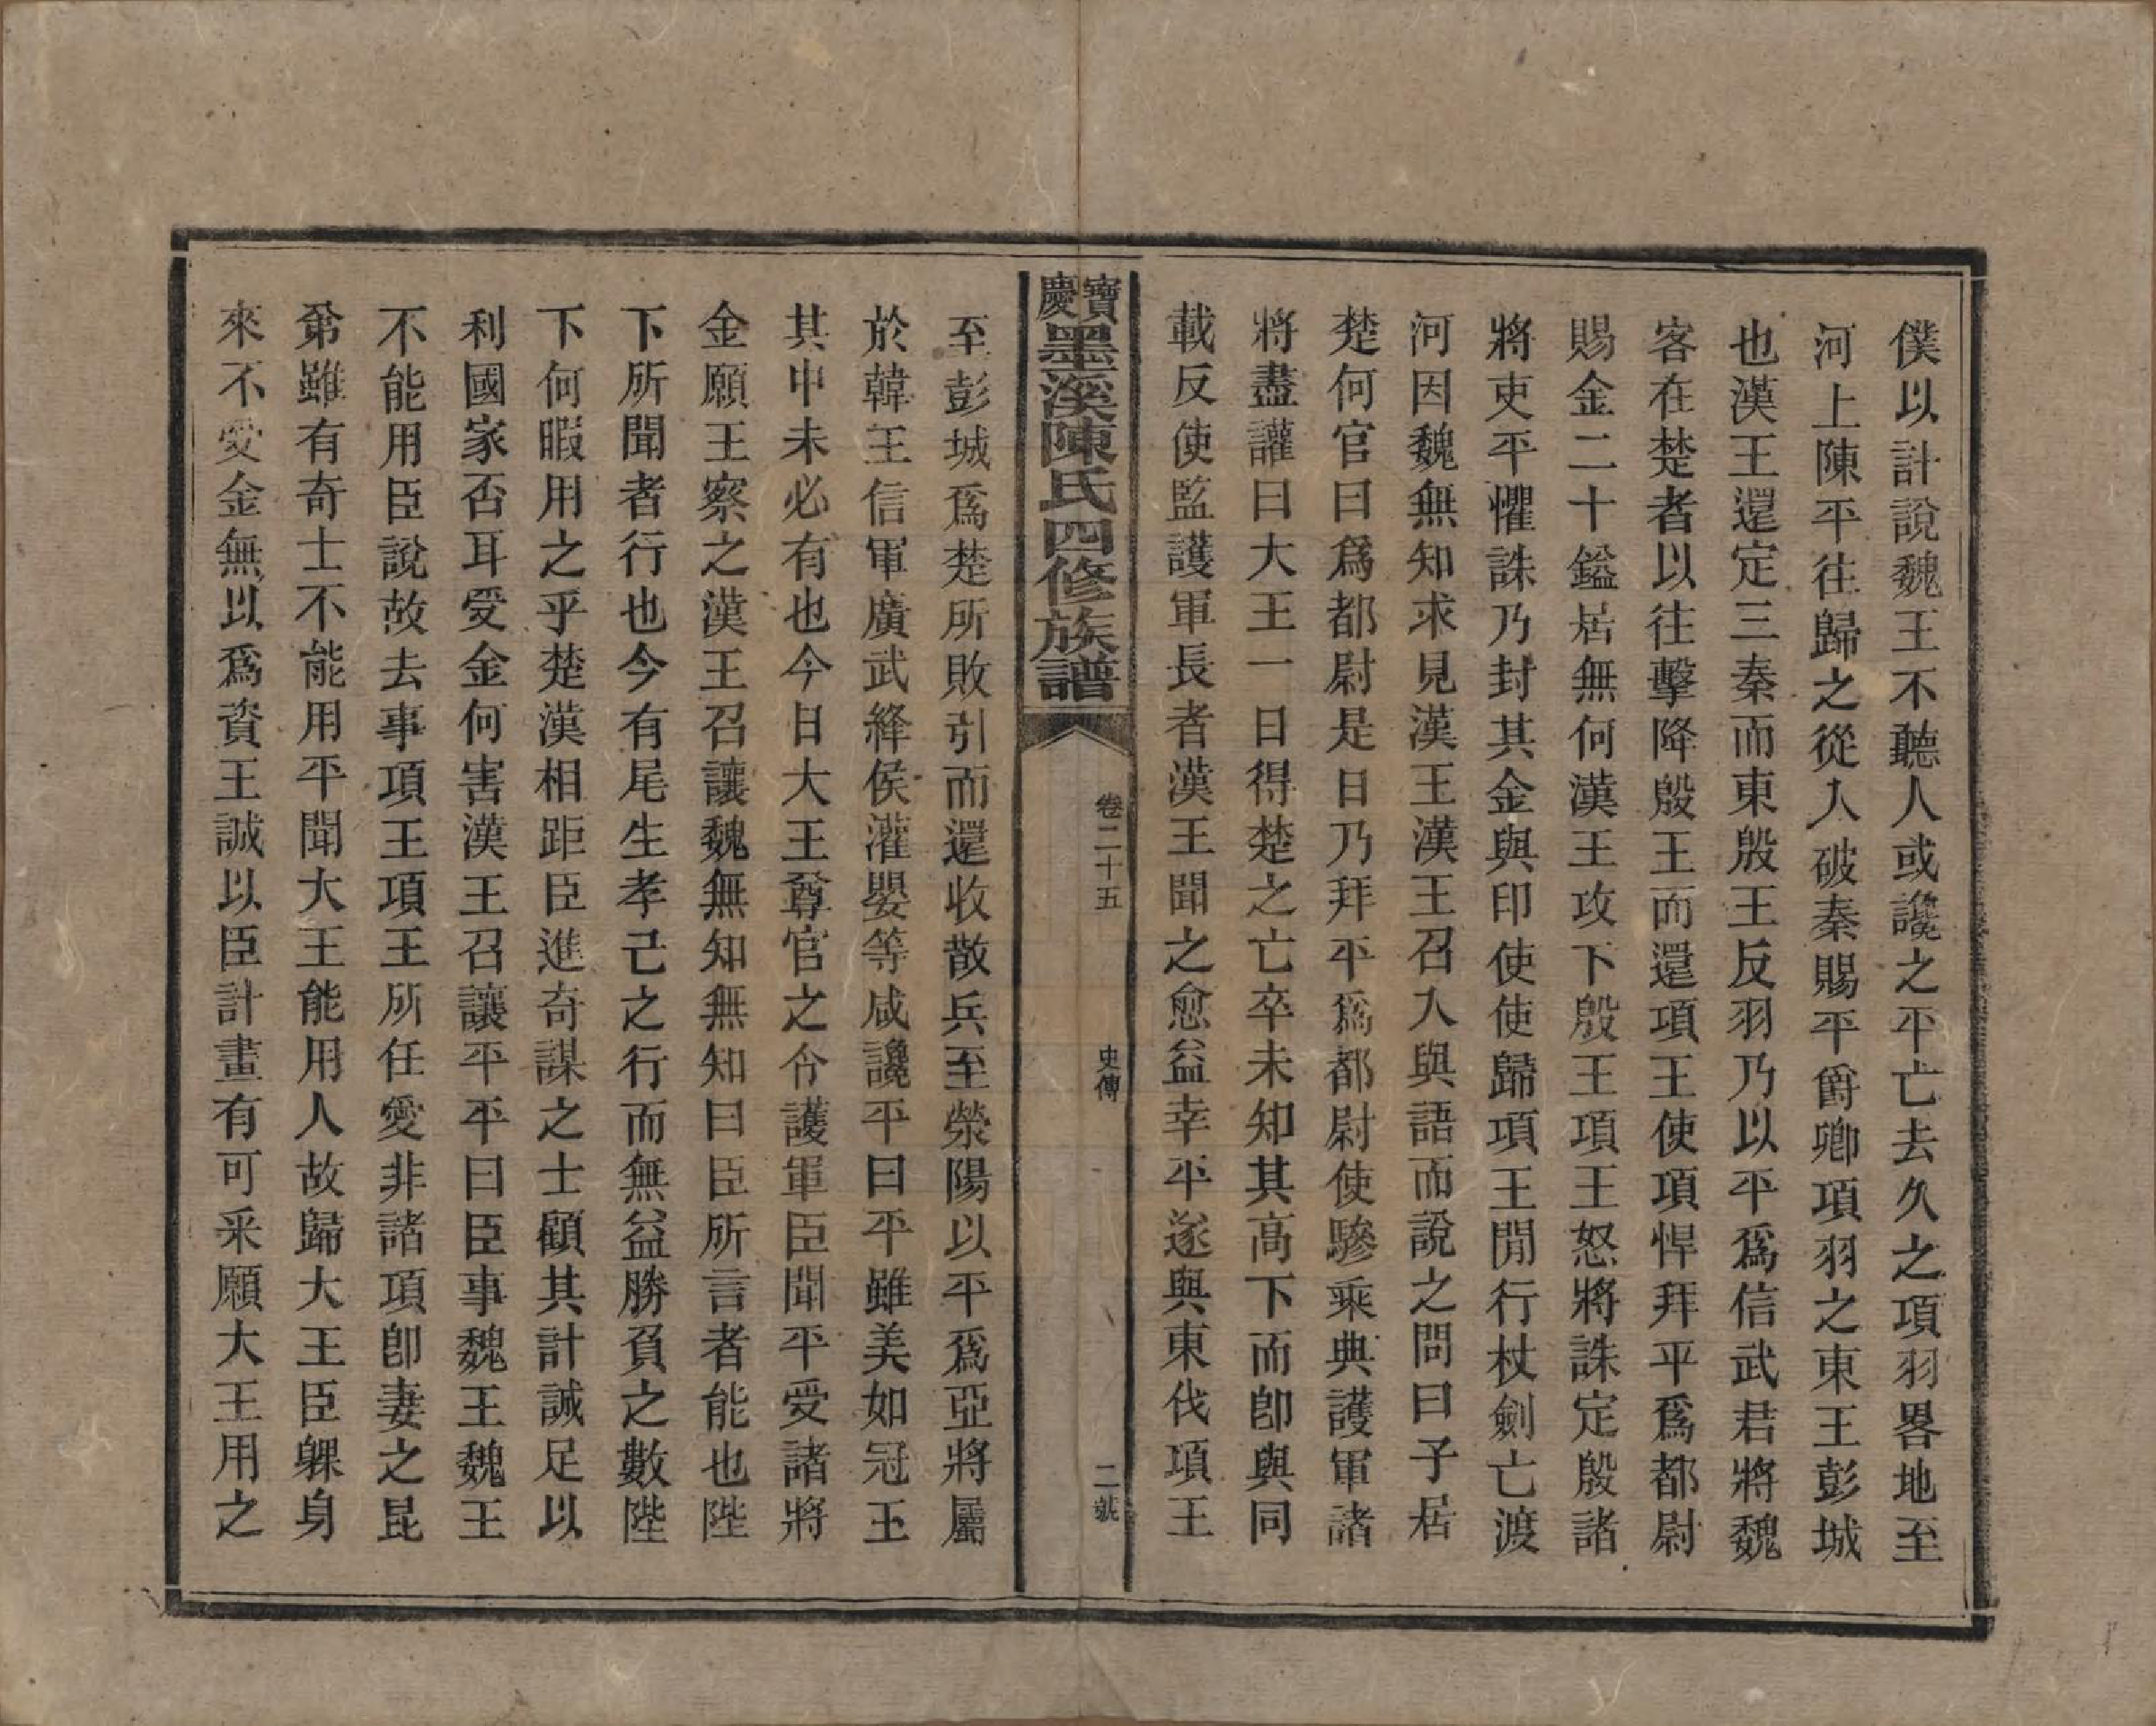 僕以計說魏王不聽人或讒之平亡去久之項羽畧地至
河上陳平往歸之從入破秦賜平爵卿項羽之東王彭城
也漢王還定三秦而東殷王反羽乃以平爲信武君將魏
客在楚者以往擊降殷王而還項王使項悍拜平爲都尉
賜金二十鎰居無何漢王攻下殷王項王怒將誅定殷諸
將吏平懼誅乃封其金與印使使歸項王閒行杖劍亡渡
河因魏無知求見漢王漢王召入與語而說之問曰子居
楚何官曰爲都尉是日乃拜平爲都尉使驂乘典護軍諸
將盡讙曰大王一日得楚之亡卒未知其高下而卽與同
載反使監護軍長者漢王聞之愈益幸平遂與東伐項王
寶慶墨溪陳氏四修族譜
卷二十五
史傳
二號
至彭城爲楚所敗引而還收散兵至滎陽以平爲亞將屬
於韓王信軍廣武絳侯灌嬰等咸讒平曰平雖美如冠玉
其中未必有也今日大王尊官之令護軍臣聞平受諸將
金願王察之漢王召讓魏無知無知曰臣所言者能也陛
下所聞者行也今有尾生孝己之行而無益勝負之數陛
下何暇用之乎楚漢相距臣進奇謀之士顧其計誠足以
利國家否耳受金何害漢王召讓平平曰臣事魏王魏王
不能用臣說故去事項王項王所任愛非諸項卽妻之昆
弟雖有奇士不能用平聞大王能用人故歸大王臣躶身
來不受金無以爲資王誠以臣計畫有可采願大王用之